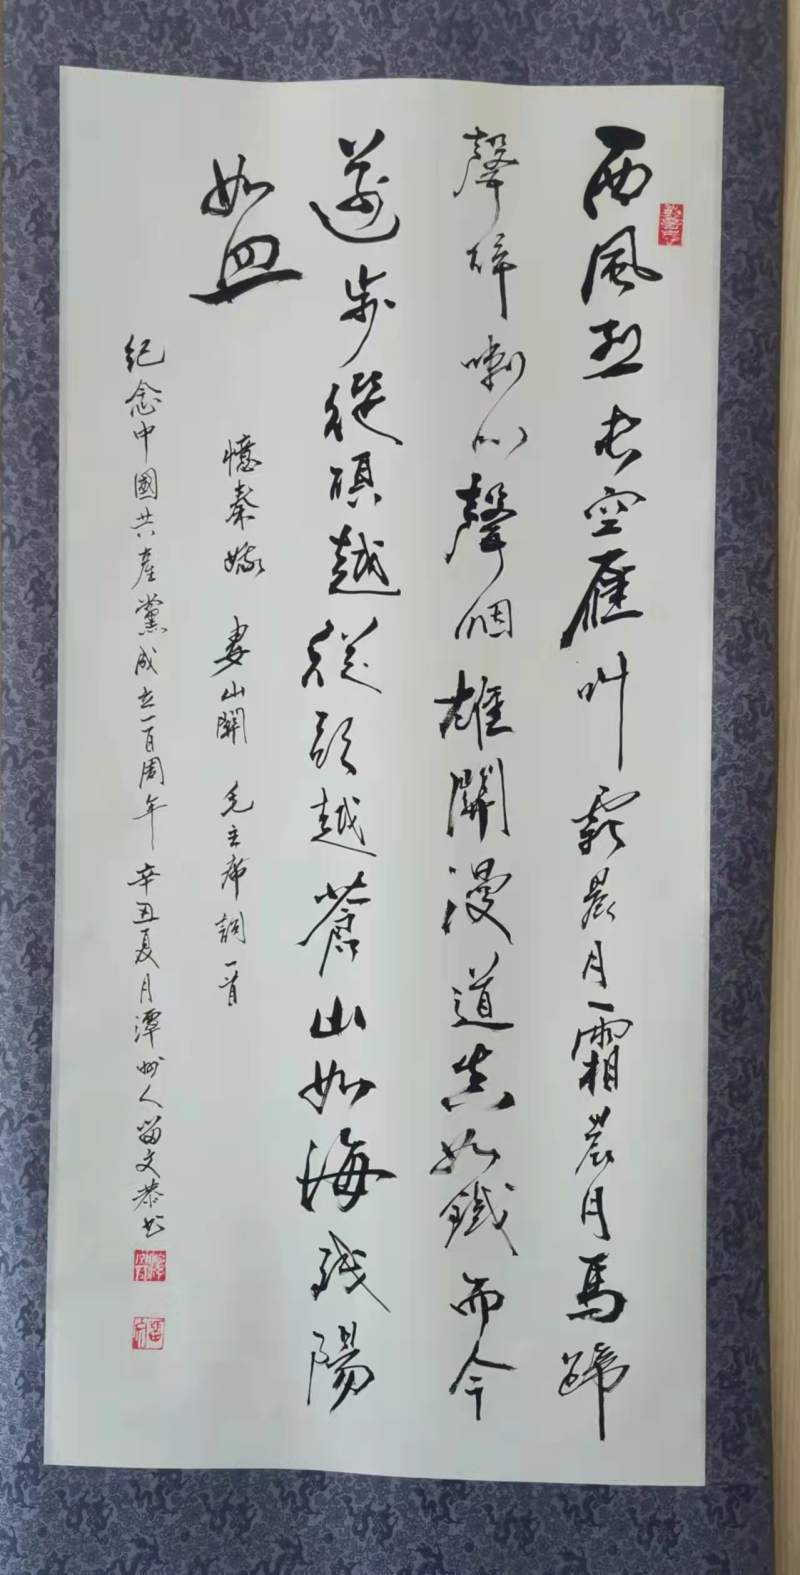 西風烈長空雁叫霜晨月霜晨月馬蹄
聲碎喇叭聲咽雄關漫道真如鐵而今
邁步從頭越從頭越蒼山如海殘陽
如血
憶秦娥 婁山關 毛主席詞一首
紀念中國共產黨成立一百周年 辛丑夏月潭州人留文恭书